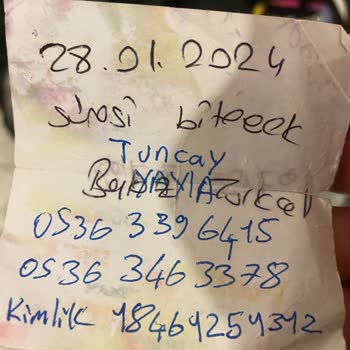 28.01.2024
süresi bitecek
Tuncay
YAYLA
0536 339 6415
0536 346 3378
Kimlik 18469259392